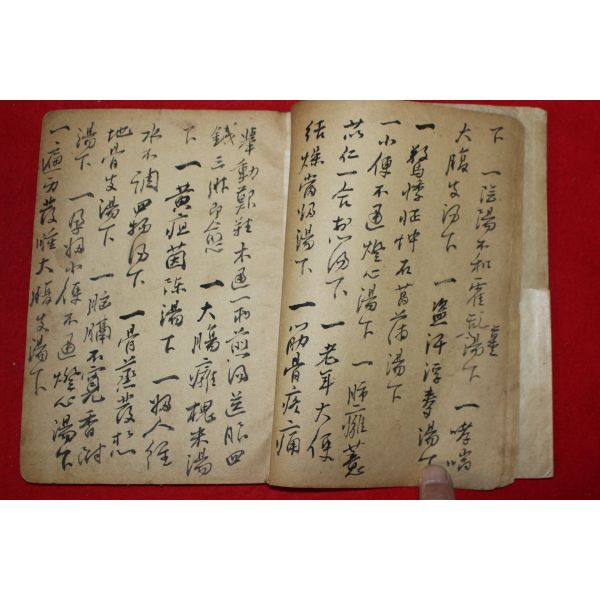 下 一陰陽不和霍乱藿湯下 一哮喘
大腹皮湯下 一盜汗浮麥湯下
一驚悸怔忡石菖蒲湯下
一小便不通燈心湯下 一肺癰薏
苡仁一合 湯下 一老年大便
結燥當歸湯下 一筋骨疼痛
擧動艱難木通一兩煎湯送服四
錢三服即愈 一大腸癰槐朱湯
下 一黃疸茵陳湯下 一婦人經
水不調四物湯下 一骨蒸發
地骨皮湯下 一膨膈不寬香附
湯下 一孕婦小便不通燈心湯下
一遍身發腫大腹皮湯下